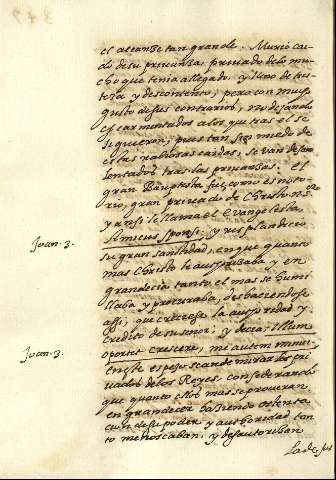 el alcanze tan grande. Murió cai-
do de su privanza, privado de lo mu-
cho que tenia allegado, y lleno de tris-
teza y descontento; pero con mucho
gusto de sus contrarios, no dejando
escarmentados a los que tras el se
siguieron; pues tan sin miedo de
estas rabiosas caidas, se van desa-
lentados tras las privanzas. el
gran Bauptista fue, como es noto-
rio, gran privado de Christo
y ansi le llama el Evangelista
Amicus sponsi; y resplandecio
su gran santidad, en que quanto
Joan. 3.
mas Christo le autorizaba y en
grandecia tanto el mas se humi
llaba y procuraba, deshaciendose
assi, que creciesse la authoridad y
credito de su señor; y decia: Illum
Joan. 3.
oportet crescere, me autem minui
en este espejo se an de mirar los pri
vados de los Reyes, considerando
que quanto ellos mas se procuran
engrandecer haziendo ostenta
cion de su poder y authoridad tan
to menoscaban, y desautorizan
la de sus